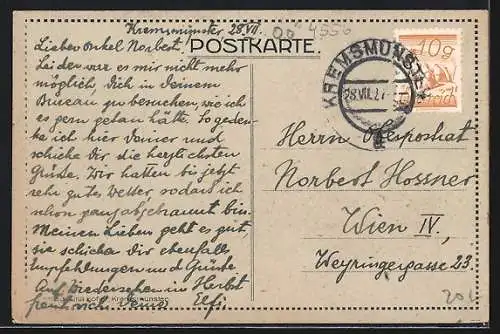 Kremsmünster 28.VII.
OÖ 4556
POSTKARTE.
Lieber Onkel Norbert.
Leider war es mir nicht mehr
möglich, Dich in Deinem
Bureau zu besuchen, wie ich
es gern getan hätte. So geden-
ke ich hier Deiner und
schicke Dir die herzlichsten
Grüße. Wir hatten bis jetzt
sehr gutes Wetter sodass ich
schon ganz abgebrannt bin.
Meinen Lieben geht es gut,
sie schicken Dir ebenfalls
Empfehlungen und Grüsse
Auf Wiedersehen im Herbst
freut sich Deine Elfi
Kremsmünster
KREMSMÜNSTER
28.VII.27
10g
Herrn Oberpostrat
Norbert Hossner
Wien IV,
Weyringergasse 23.